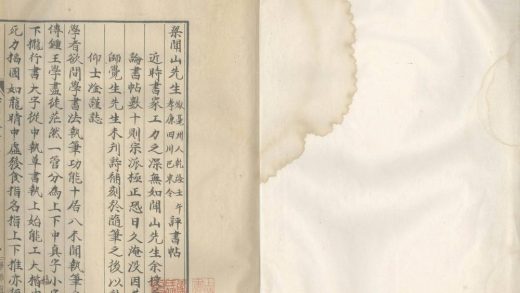 梁聞山先生 亳州人乾隆壬午 孝廉四川巴東令 評書帖
近時書家工力之深無如聞山先生余
論書帖數十則宗派極正恐日久淹沒因
師覺生先生未刋 稿刻於隨筆之後以
仰士陰謹誌
學者欲問學書法執筆功能十居八未聞執筆
傳鍾王學盡徒茫然一管分為上下中真字小
下攏行書大字從中執草書執上始能工大指中
死力搯圓如龍睛中虛發食指名指上下推亦